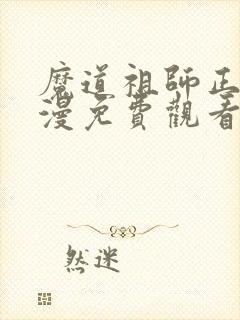 魔道祖師正
漫免費觀看
然迷